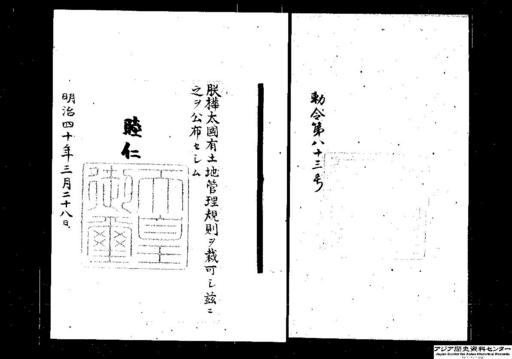 勅令第八十三号
朕樺太國有土地管理規則ヲ裁可シ茲ニ
之ヲ公布セシム
睦仁
天皇
御璽
明治四十年三月二十八日
アジア歴史資料センター
Japan Center for Asian Historical Records